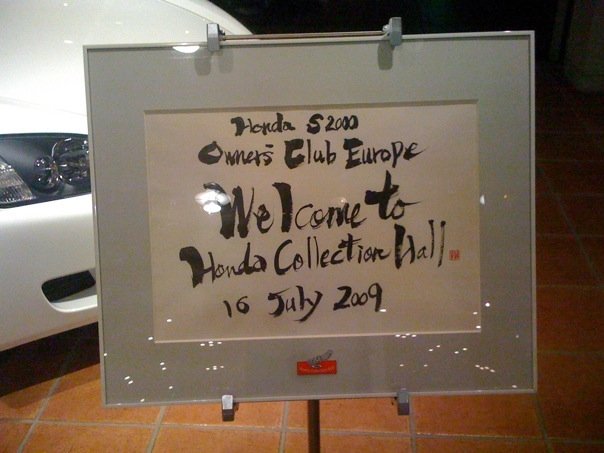 Honda S2000
Owners' Club Europe
Welcome to
Honda Collection Hall
16 July 2009